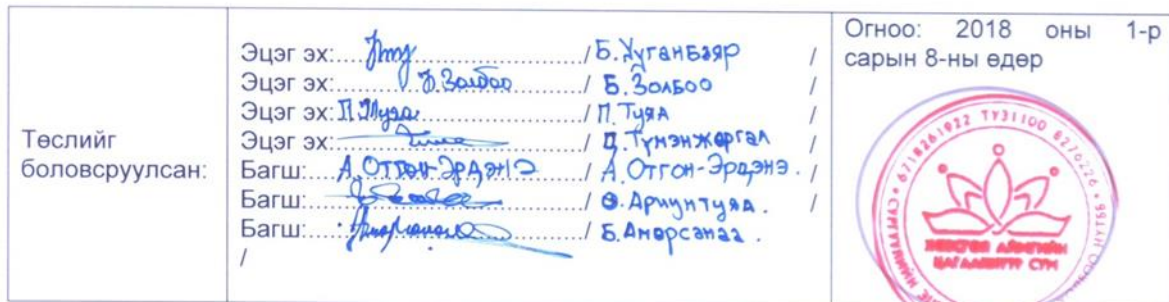 Төслийг
боловсруулсан:
Эцэг эх:............/ Б.Нуганбаяр /
Эцэг эх:.... Б.Золбоо ....../ Б.Золбоо /
Эцэг эх: П.Туяа ............/ П.Туяа /
Эцэг эх:............/ Д.Түмэнжаргал /
Багш:... А.Отгон-Эрдэнэ ......./ А.Отгон-Эрдэнэ. /
Багш:............/ Ө.Ариунтуяа. /
Багш:............/ Б.Амарсанаа.
/
Огноо: 2018 оны 1-р
сарын 8-ны өдөр
6718261922 ТУ31100
ХӨВСГӨЛ АЙМГИЙН
ЦАГААННУУР СУМ